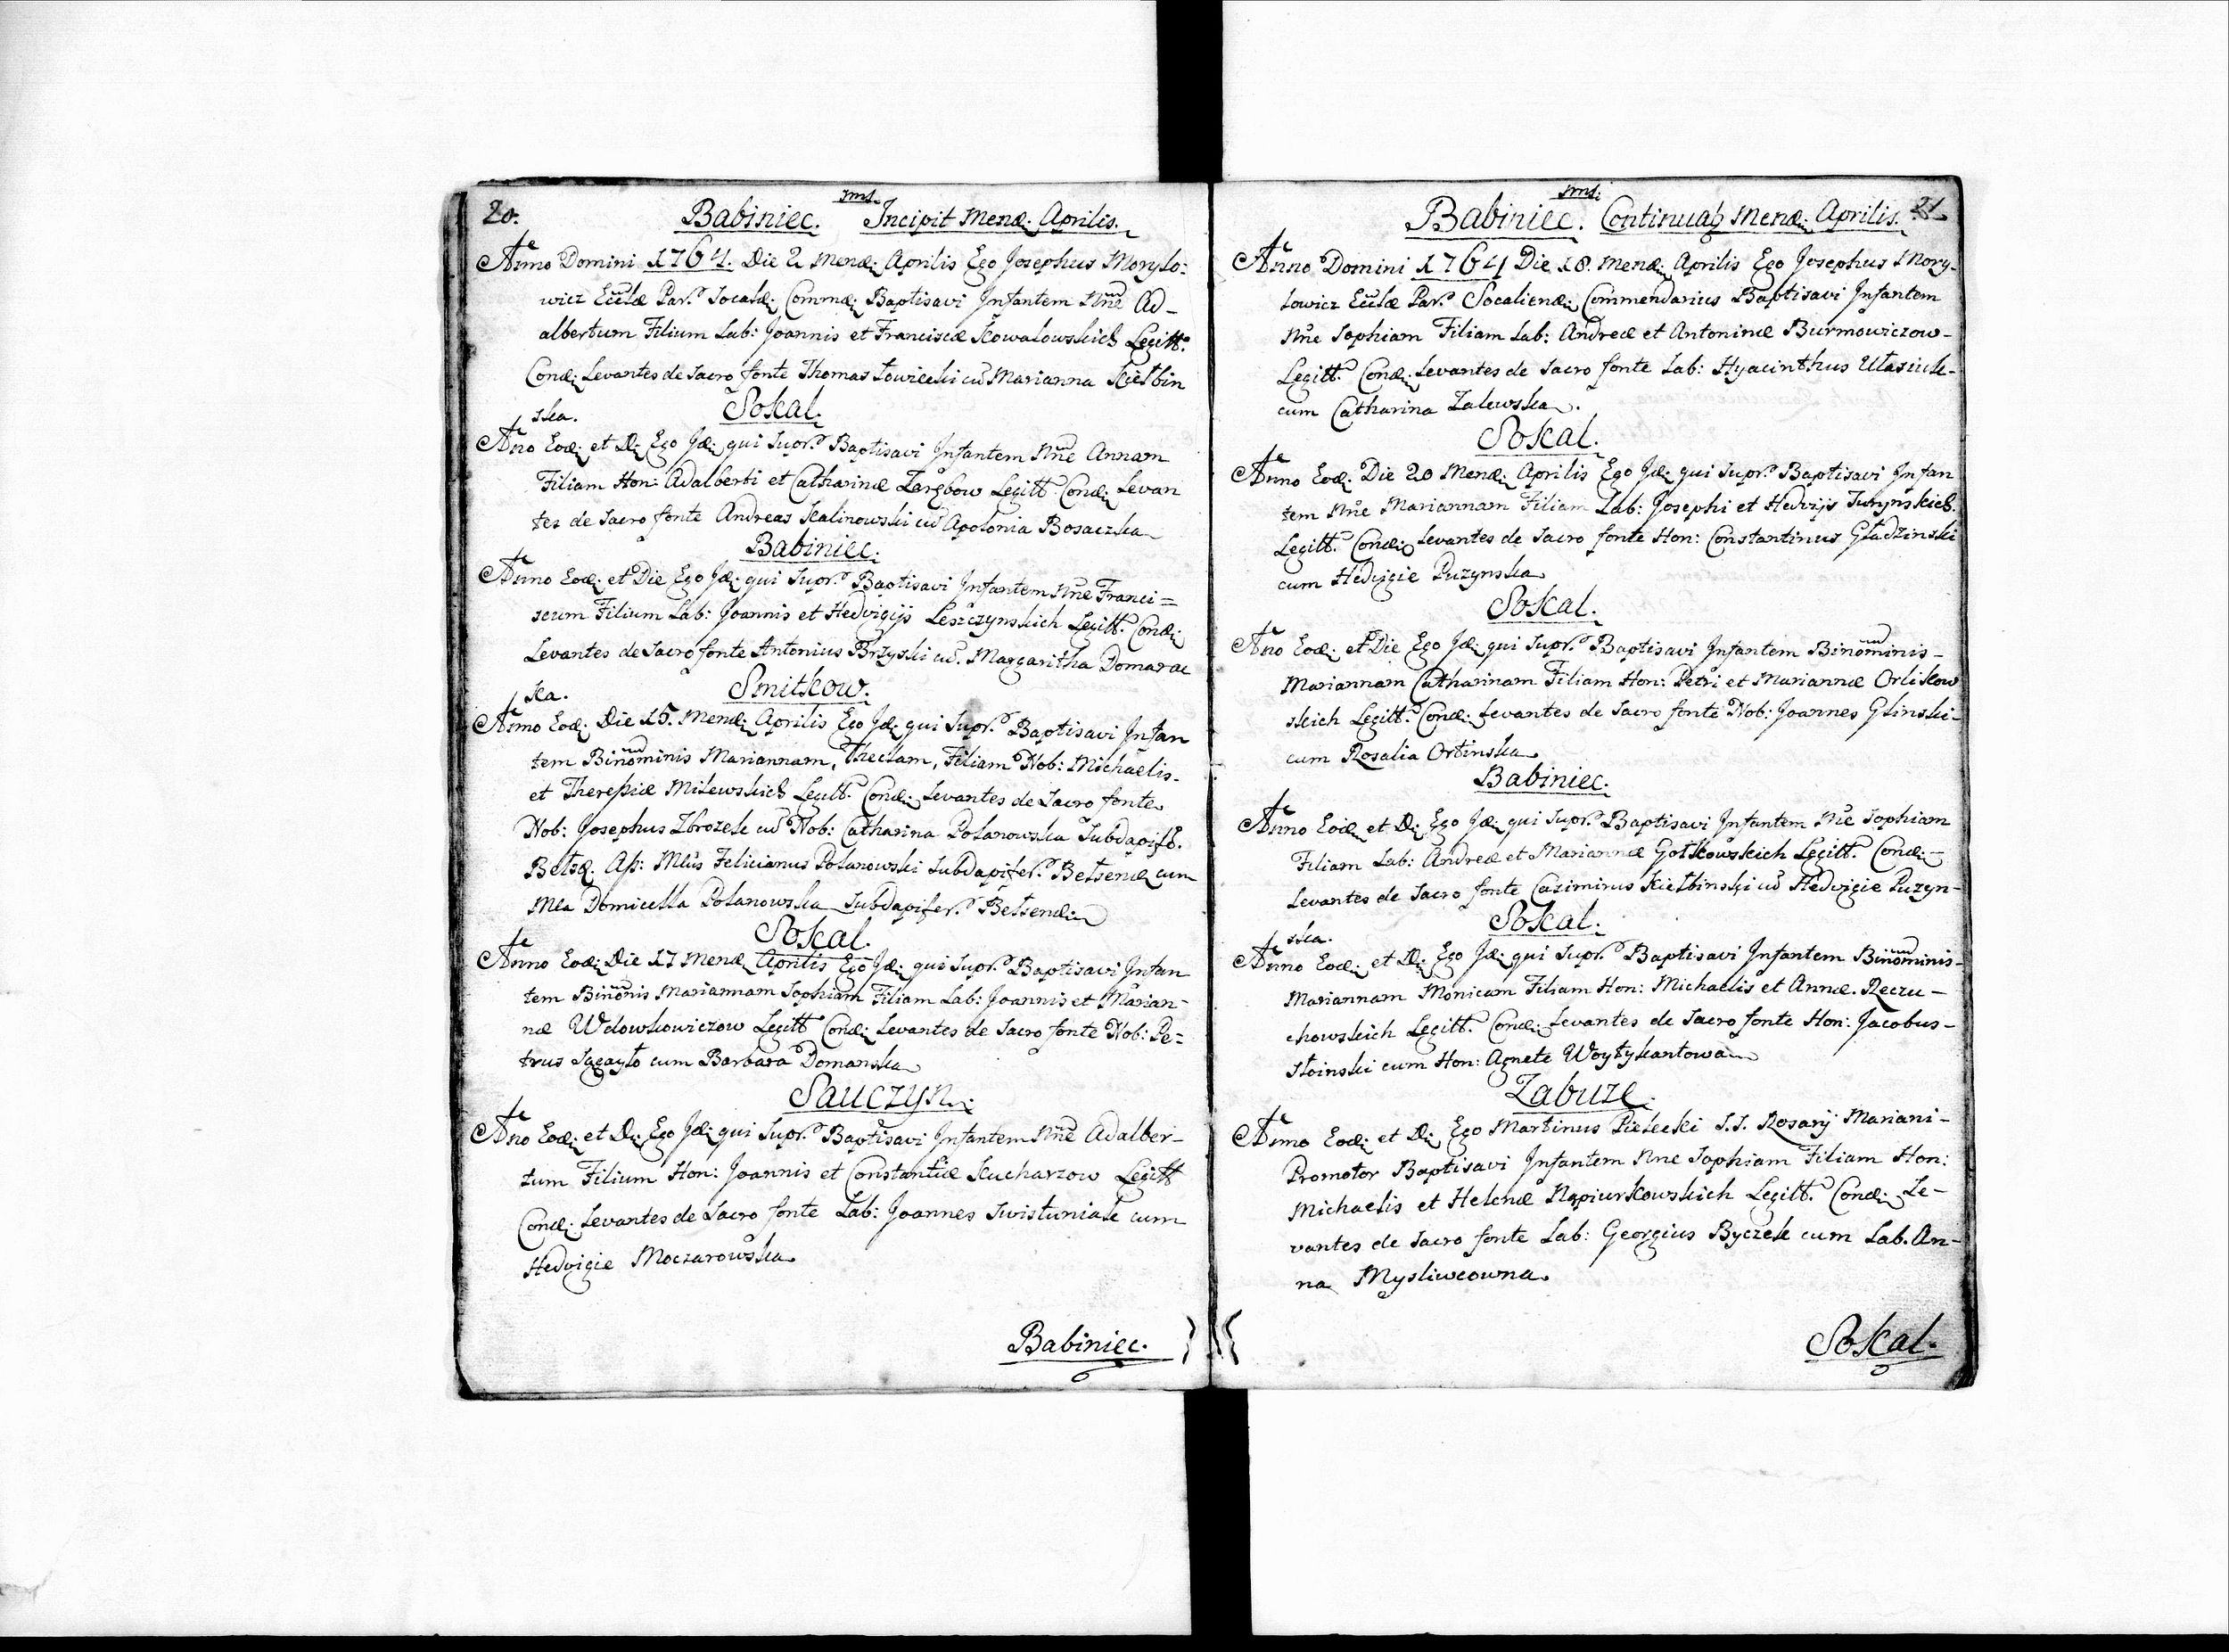 20. Babiniec. Incipit Mensꝭ Aprilis.
Anno Domini 1764. Die 2 Mensꝭ Aprilis Ego Josephus Morylo-
wicz Ecclæ Par. Socalꝭ Commꝭ Baptisavi Infantem Nne Ad-
albertum Filium Lab: Joannis et Franciscæ Kowalowskich Legitt.
Conꝭ Levantes de Sacro fonte Thomas Łowiecki cū Marianna Kiełbin
ska.
Sokal.
Ano Eodꝭ et Dꝭ Ego Idꝭ qui Supr. Baptisavi Infantem Nne Annam
Filiam Hon: Adalberti et Catharinæ Zarębow Legitt. Conꝭ Levan
tes de Sacro fonte Andreas Kalinowski cū Apolonia Bosaczka
Babiniec.
Anno Eodꝭ et Die Ego Idꝭ qui Supr. Baptisavi Infantem Nne Franci=
scum Filium Lab: Joannis et Hedvigijs Leszczynskich Legitt. Conꝭ
Levantes de Sacro fonte Antonius Brzyski cū. Margaritha Domarac
ka.
Smitkow.
Anno Eodꝭ Die 15. Mensꝭ Aprilis Ego Idꝭ qui Supr. Baptisavi Infan
tem Binominis Mariannam, Theclam, Filiam Nob: Michaelis-
et Theresiæ Milewskich Legitt. Conꝭ Levantes de Sacro fonte
Nob: Josephus Zbrozek cū Nob: Catharina Polanowska Subdapif.
Belsꝭ. Ass: Mlus Felicianus Polanowski Subdapifer. Belsensꝭ cum
Mla Domicella Polanowska Subdapifer. Belsensꝭ
Sokal.
Anno Eodꝭ Die 17 Mensꝭ Aprilis Ego Idꝭ qui Supr. Baptisavi Infan
tem Binonis Mariannam Sophiam Filiam Lab: Joannis et Marian-
næ Wdowkowiczow Legitt Conꝭ Levantes de Sacro fonte Nob: Pe=
trus cum Barbara Domanska
Sauczyn.
Ano Eodꝭ et Dꝭ Ego Idꝭ qui Supr. Baptisavi Infantem Nne Adalber-
tum Filium Hon: Joannis et Constantiæ Kucharzow Legitt
Conꝭ Levantes de Sacro fonte Lab: Joannes Swistuniak cum
Hedvigie Moczarowska
Babiniec.
Babiniec. Continuatꝭ Mensꝭ Aprilis. 21
Anno Domini 1764 Die 18. Mensꝭ Aprilis Ego Josephus Mory-
lowicz Ecclæ Par. Socaliensꝭ Commendarius Baptisavi Infantem
Nne Sophiam Filiam Lab: Andreæ et Antoninæ Burmowiczow-
Legitt. Conꝭ Levantes de Sacro fonte Lab: Hyacinthus Ułasiuk-
cum Catharina Zalewska.
Sokal.
Anno Eodꝭ. Die 20 Mensꝭ Aprilis Ego Idꝭ qui Supr. Baptisavi Infan
tem Nne Mariannam Filiam Lab: Josephi et Hedvijs Turynskich.
Legitt. Conꝭ Levantes de Sacro fonte Hon: Constantinus Gładzinski
cum Hedvigie Puzynska
Sokal.
Ano Eodꝭ et Die Ego Idꝭ qui Supr. Baptisavi Infantem Binominis-
Mariannam Catharinam Filiam Hon: Petri et Mariannæ Orlikow
skich Legitt. Conꝭ Levantes de Sacro fonte Nob: Joannes Glinski-
cum Rosalia Ortinska
Babiniec.
Anno Eodꝭ et Dꝭ Ego Idꝭ qui Supr. Baptisavi Infantem Nne Sophiam
Filiam Lab: Andreæ et Mariannæ Gotkowskich Legitt. Conꝭ-
Levantes de Sacro fonte Casimirus Kiełbinski cū Hedvigie Puzyn-
ska.
Sokal.
Anno Eodꝭ et Dꝭ Ego Idꝭ qui Supr. Baptisavi Infantem Binominis-
Mariannam Monicam Filiam Hon: Michaelis et Annæ. Reczu-
chowskich Legitt. Conꝭ Levantes de Sacro fonte Hon: Jacobus-
Słoinski cum Hon: Agnete Woytykantowa
Zabuze.
Anno Eodꝭ et Dꝭ Ego Martinus Pielecki S.S. Rosarij Mariani-
Promotor Baptisavi Infantem Nne Sophiam Filiam Hon:
Michaelis et Helenæ Napiurkowskich Legitt. Conꝭ Le-
vantes de Sacro fonte Lab: Georgius Byczek cum Lab. An-
na Mysliwcowna.
Sokal.